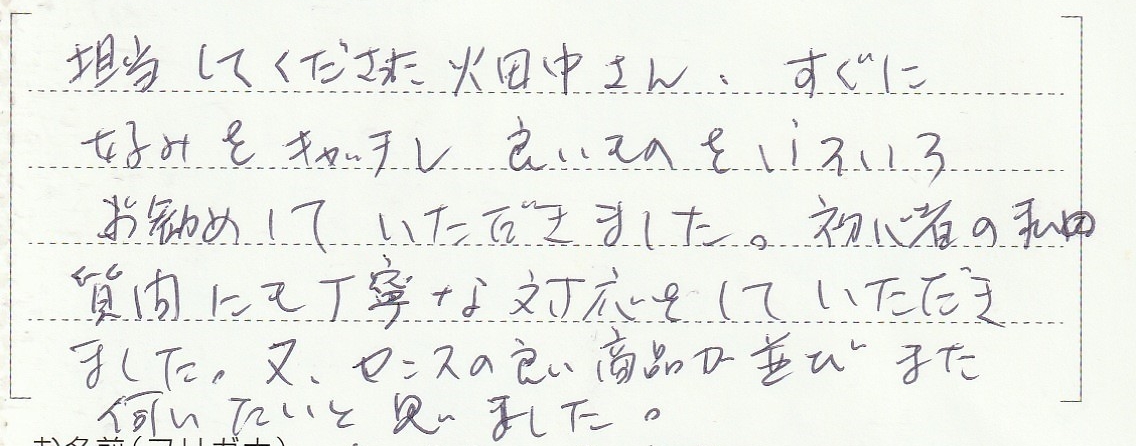 担当してくださった畑中さん、すぐに
好みをキャッチし良いものをいろいろ
お勧めしていただきました。初心者の私の
質問にも丁寧な対応をしていただき
ました。又、センスの良い商品が並びまた
伺いたいと思いました。
お名前(フリガナ)